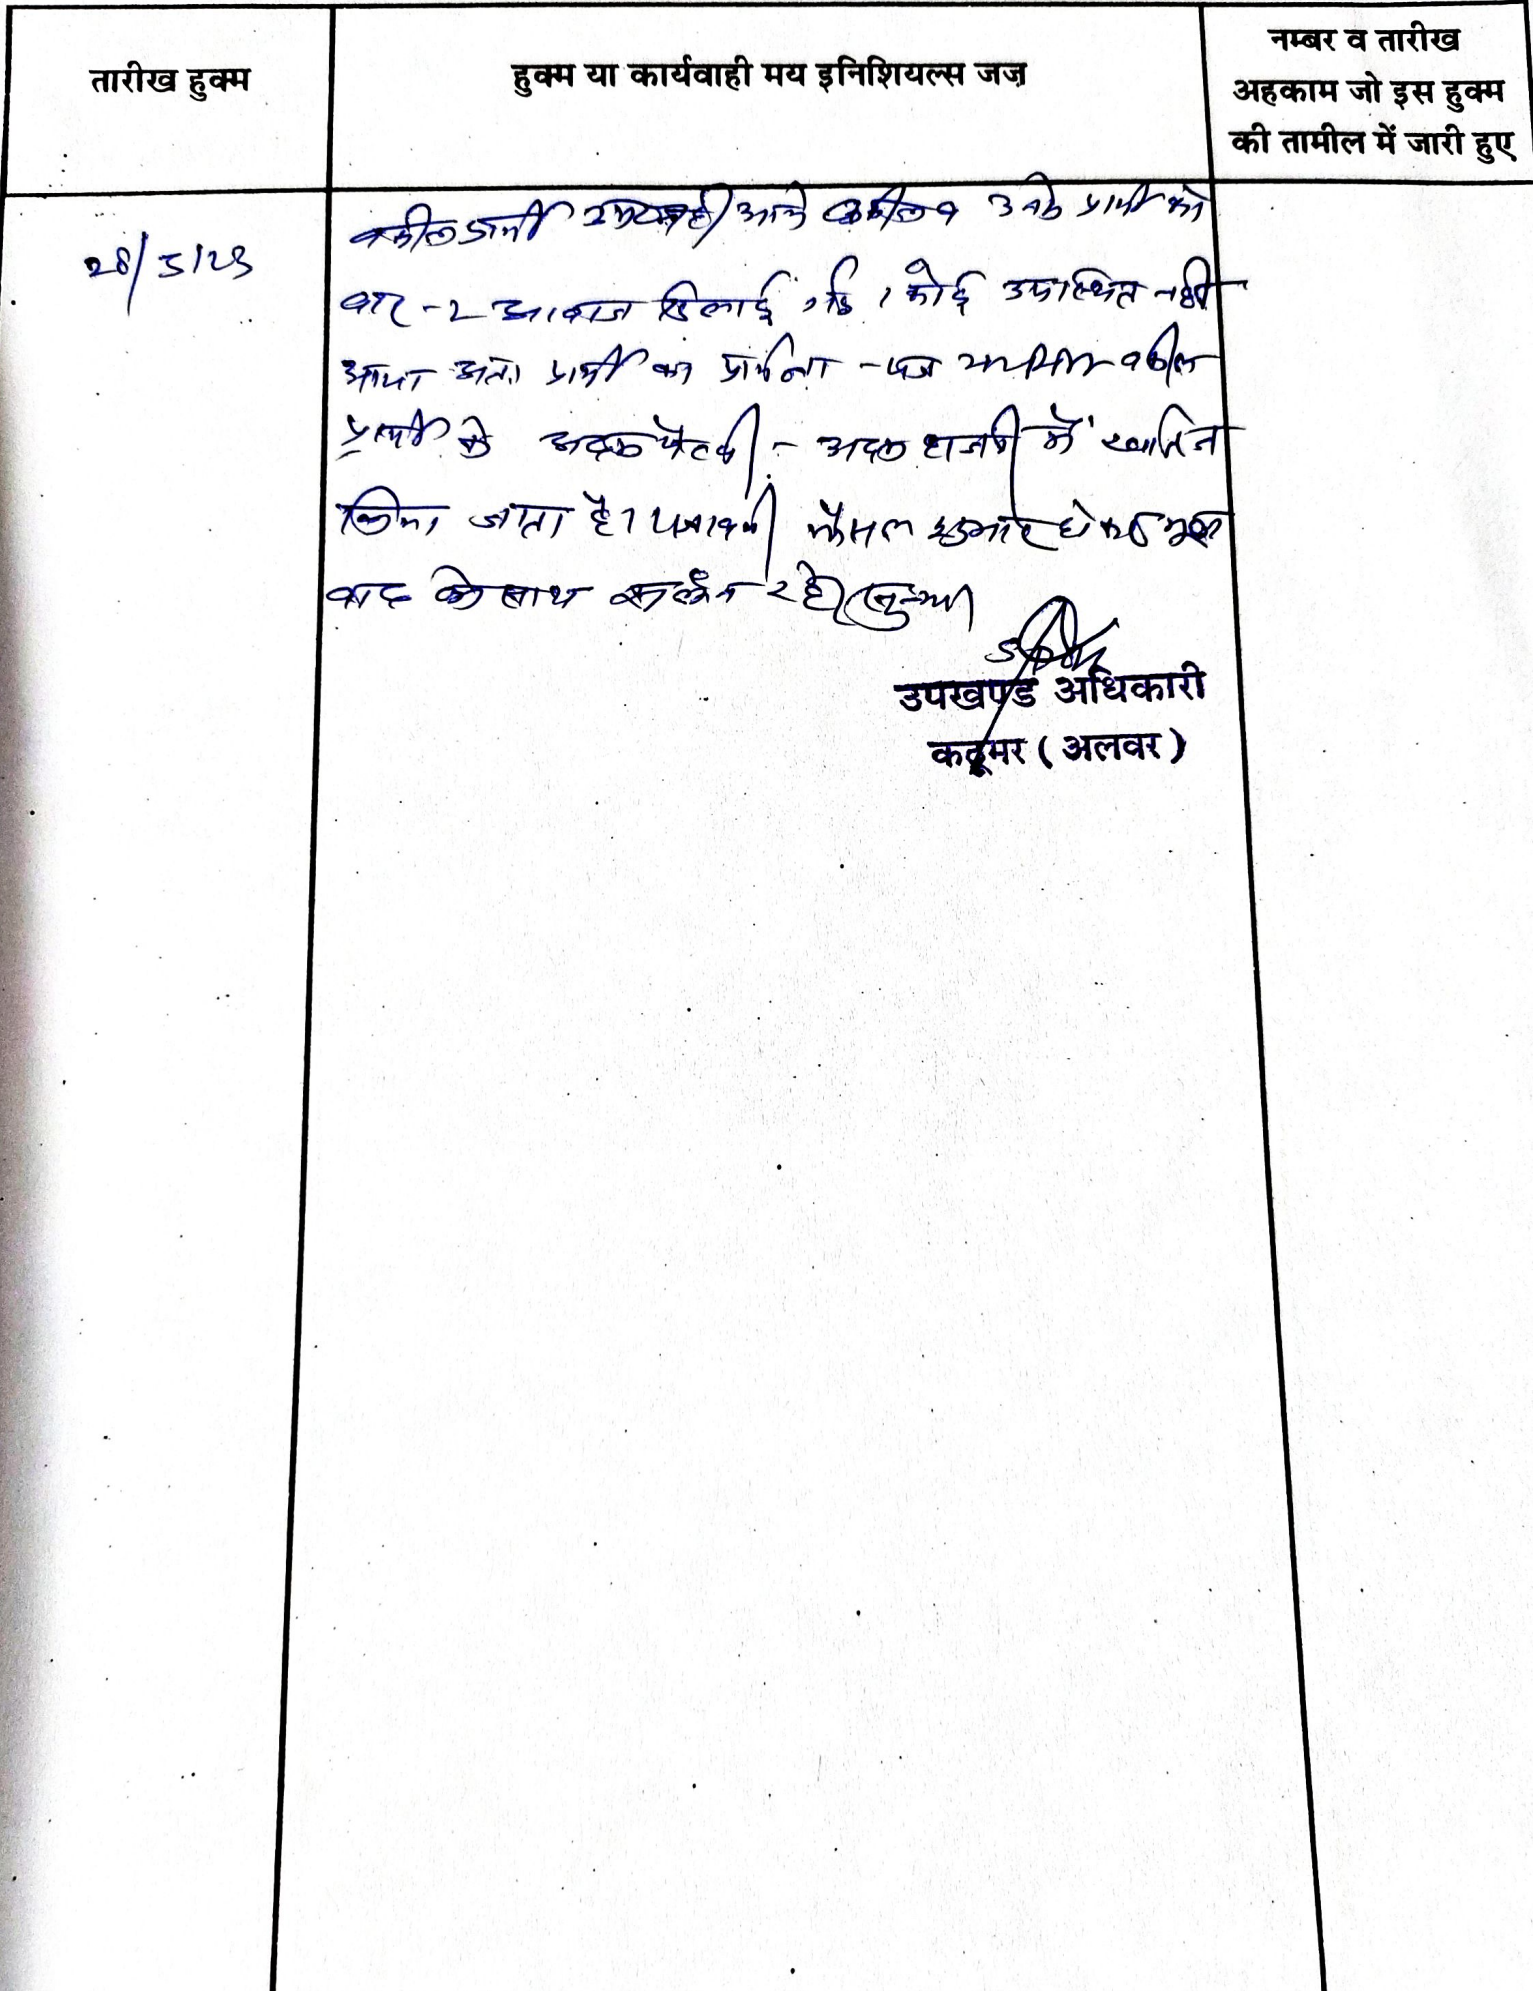 तारीख हुक्म
हुक्म या कार्यवाही मय इनिशियल्स जज़
नम्बर व तारीख
अहकाम जो इस हुक्म
की तामील में जारी हुए
28/5/23
वकील प्रार्थी आने वकील व उनके प्रार्थी को
बार-2 आवाज दिलाई गई। कोई उपस्थित नही
आया अतः प्रार्थी का प्रार्थना-पत्र वकील
प्रार्थी के अदम पैरवी - अदम हाजरी में खारिज
किया जाता है। पत्रावली फैसल शुमार होकर मूल
वाद के साथ संलग्न रहे।
उपखण्ड अधिकारी
कठूमर (अलवर)